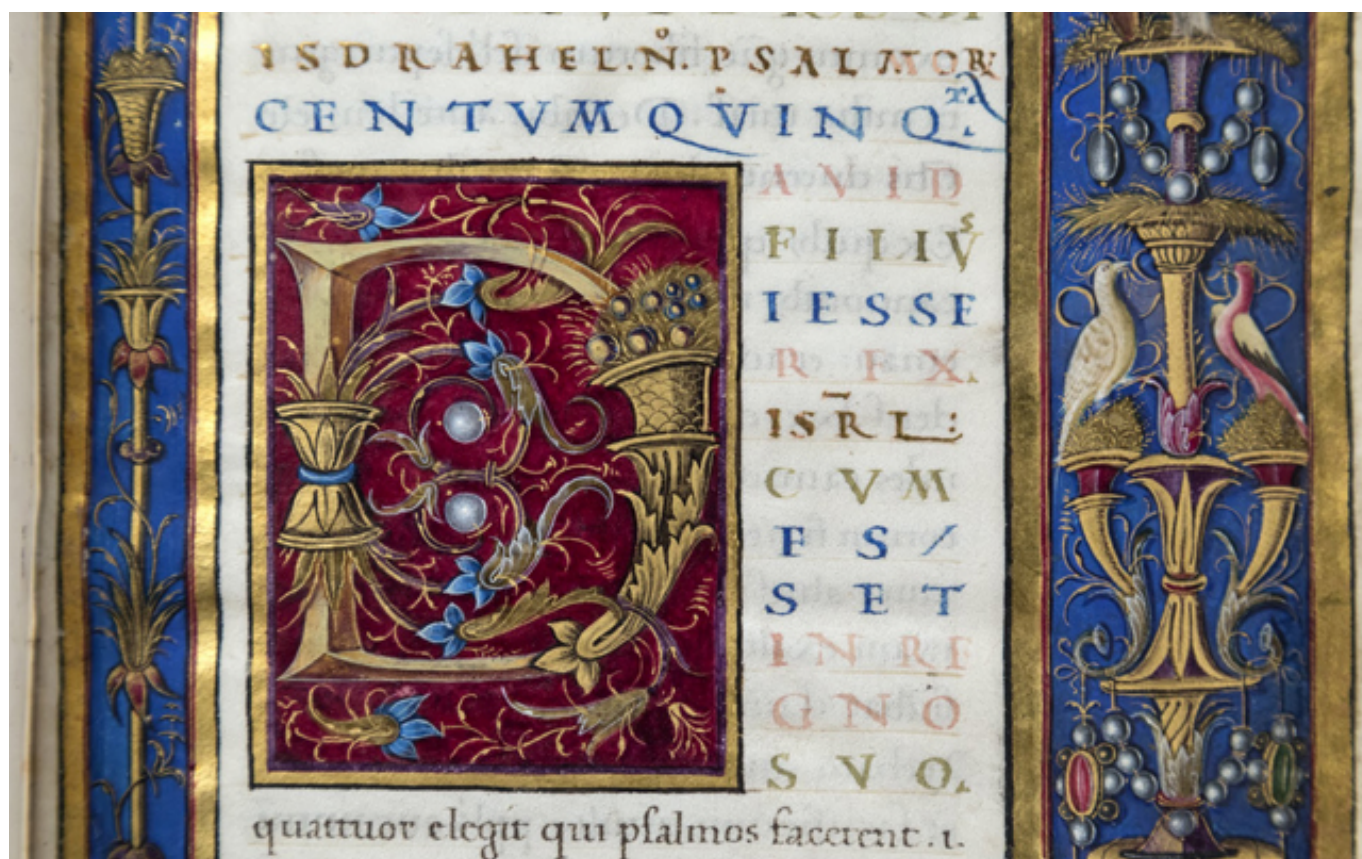 ISDRAHEL.N̊.PSALMOR
CENTVM QVINQ.ta
AVID
FILIVs
IESSE
REX.
ISR̄L:
CVM
ES/
SET
IN RE
GNO
SVO.
quattuor elegit qui psalmos facerent .i.